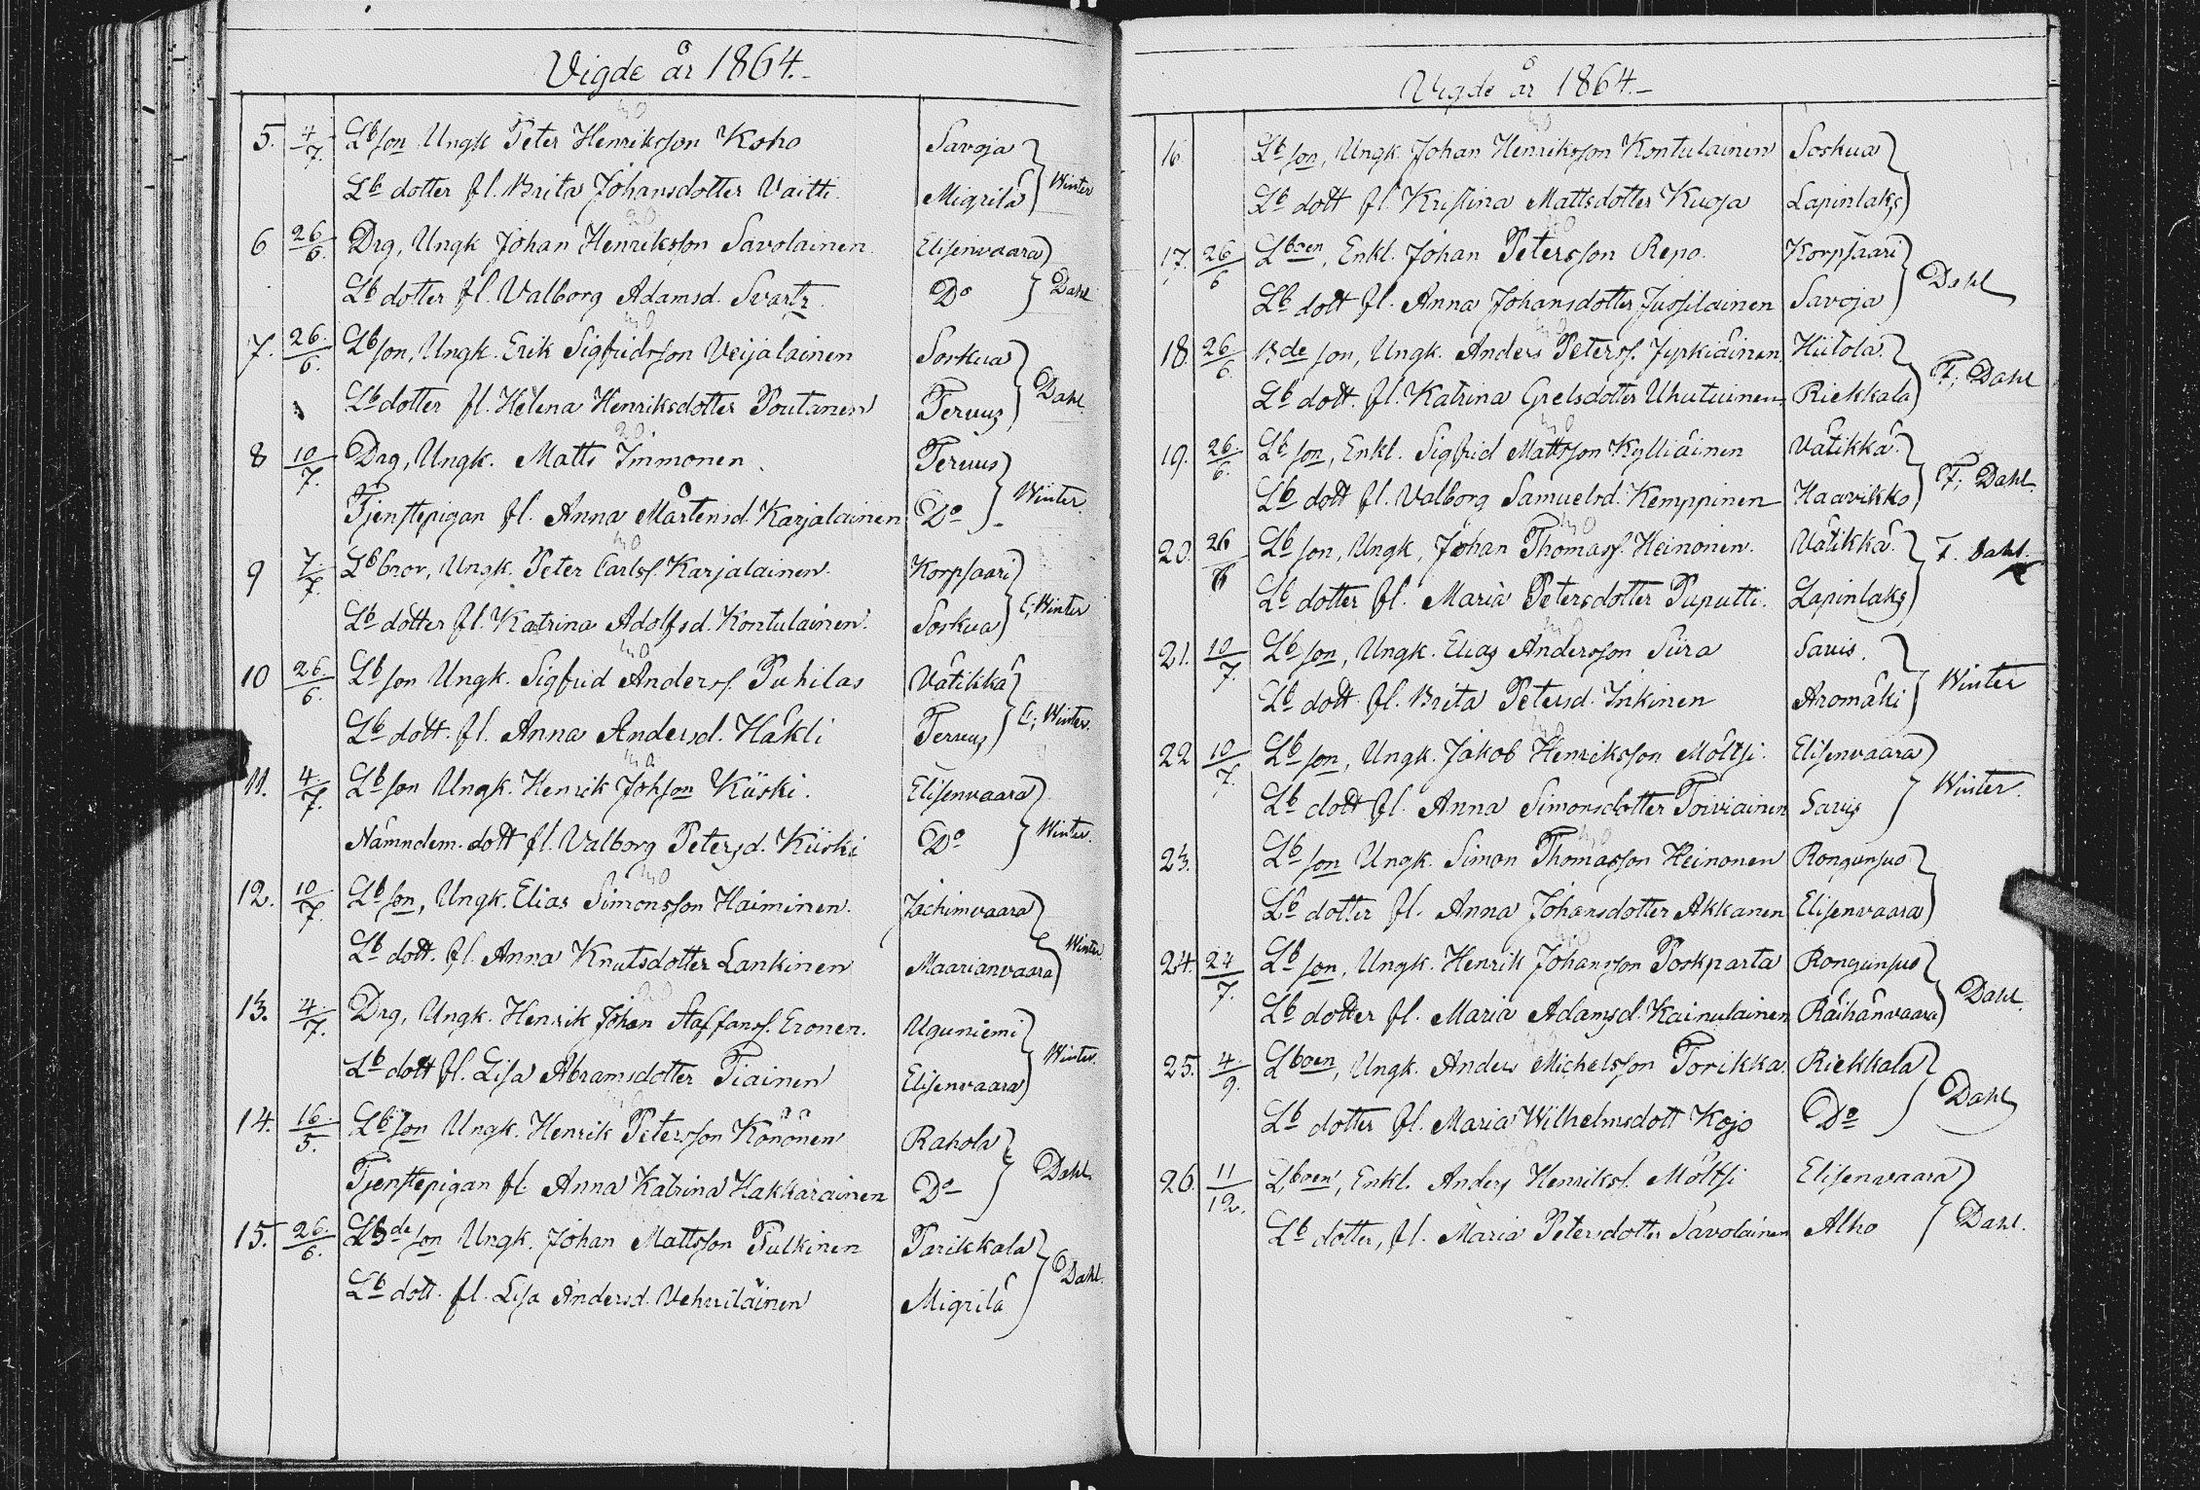 Vigde år 1864.
5. 4/7. Lb son Ungk Peter Henriksson Koho Savoja
Lb dotter fl. Brita Johansdotter Vaitti Migrilä Winter
6 26/6. Drg, Ungk Johan Henriksson Savolainen Elisenvaara
Lb dotter fl. Valborg Adamsd. Svartz Do Dahl
7. 26/6. Lb son, Ungk. Erik Sigfridsson Veijalainen Soskua
Lb dotter fl. Helena Henriksdotter Poutanen Tervus Dahl.
8 10/7. Drg, Ungk. Matts Immonen. Tervus
Tjenstepigan fl. Anna Mårtensd. Karjalainen Do Winter
9 7/7. Lb bror, Ungk. Peter Carlss. Karjalainen. Korpsaari
Lb dotter fl. Katrina Adolfsd. Kontulainen. Soskua E; Winter
10 26/6. Lb son Ungk. Sigfrid Anderss. Puhilas Vätikkä
Lb dott. fl. Anna Andersd. Häkli Tervus E; Winter.
11. 4/7. Lb son Ungk. Henrik Johson Kiiski. Elisenvaara
Nämndem. dott fl. Valborg Petersd. Kiiski Do Winter.
12. 10/7. Lb son, Ungk. Elias Simonsson Haiminen. Jachimvaara
Lb dott. fl. Anna Knutsdotter Lankinen Maarianvaara Winter
13. 4/7. Drg, Ungk. Henrik Johan Staffanss. Eronen. Uguniemi
Lb dott fl. Lisa Abramsdotter Tiainen Elisenvaara Winter.
14. 16/5. Lb son Ungk. Henrik Petersson Könönen Rahola
Tjenstepigan fl. Anna Katrina Hakkarainen Do Dahl
15. 26/6. son Ungk. Johan Mattsson Pulkinen Parikkala
Lb dott. fl. Lisa Andersd. Vehviläinen Migrilä Dahl.
Vigde år 1864.
16. Lb son, Ungk. Johan Henriksson Kontulainen Soskua
Lb dott fl. Kristina Mattsdotter Kuosa Lapinlaks
17. 26/6 Lboen, Enkl. Johan Petersson Repo. Korpsaari
Lb dott fl. Anna Johansdotter Jussilainen Savoja Dahl
18. 26/6. Bde son, Ungk. Anders Peterss. Jyrkiäinen Hiitola.
Lb dott. fl. Katrina Grelsdotter Uhutuinen Riekkala F; Dahl
19. 26/6. Lb son, Enkl. Sigfrid Mattsson Kylliäinen Vätikkä
Lb dott fl. Valborg Samuelsd. Kemppinen Haavikko F; Dahl.
20. 26/6 Lb son, Ungk, Johan Thomass. Heinonen. Vätikkä
Lb dotter fl. Maria Petersdotter Puputti. Lapinlaks F. Dahl.
21. 10/7. Lb son, Ungk. Elias Andersson Siira Saris.
Lb dott. fl. Brita Petersd. Inkinen Aromäki Winter
22 10/7. Lb son, Ungk. Jakob Henriksson Möltsi. Elisenvaara
Lb dott fl. Anna Simonsdotter Toiviainen Saris Winter.
23. Lb son Ungk. Simon Thomasson Heinonen Rongunsuo
Lb dotter fl. Anna Johansdotter Akkanen Elisenvaara
24. 24/7. Lb son, Ungk. Henrik Johansson Poskparta Rongunsuo
Lb dotter fl. Maria Adamsd. Kainulainen Räihänvaara Dahl.
25. 4/9. Lboen, Ungk. Anders Michelsson Torikka. Riekkala
Lb dotter fl. Maria Wilhelmsdott Kojo Do Dahl
26. 11/12. Lboen, Enkl. Anders Henrikss. Möltsi Elisenvaara
Lb dotter, fl. Maria Petersdotter Savolainen Alho Dahl.